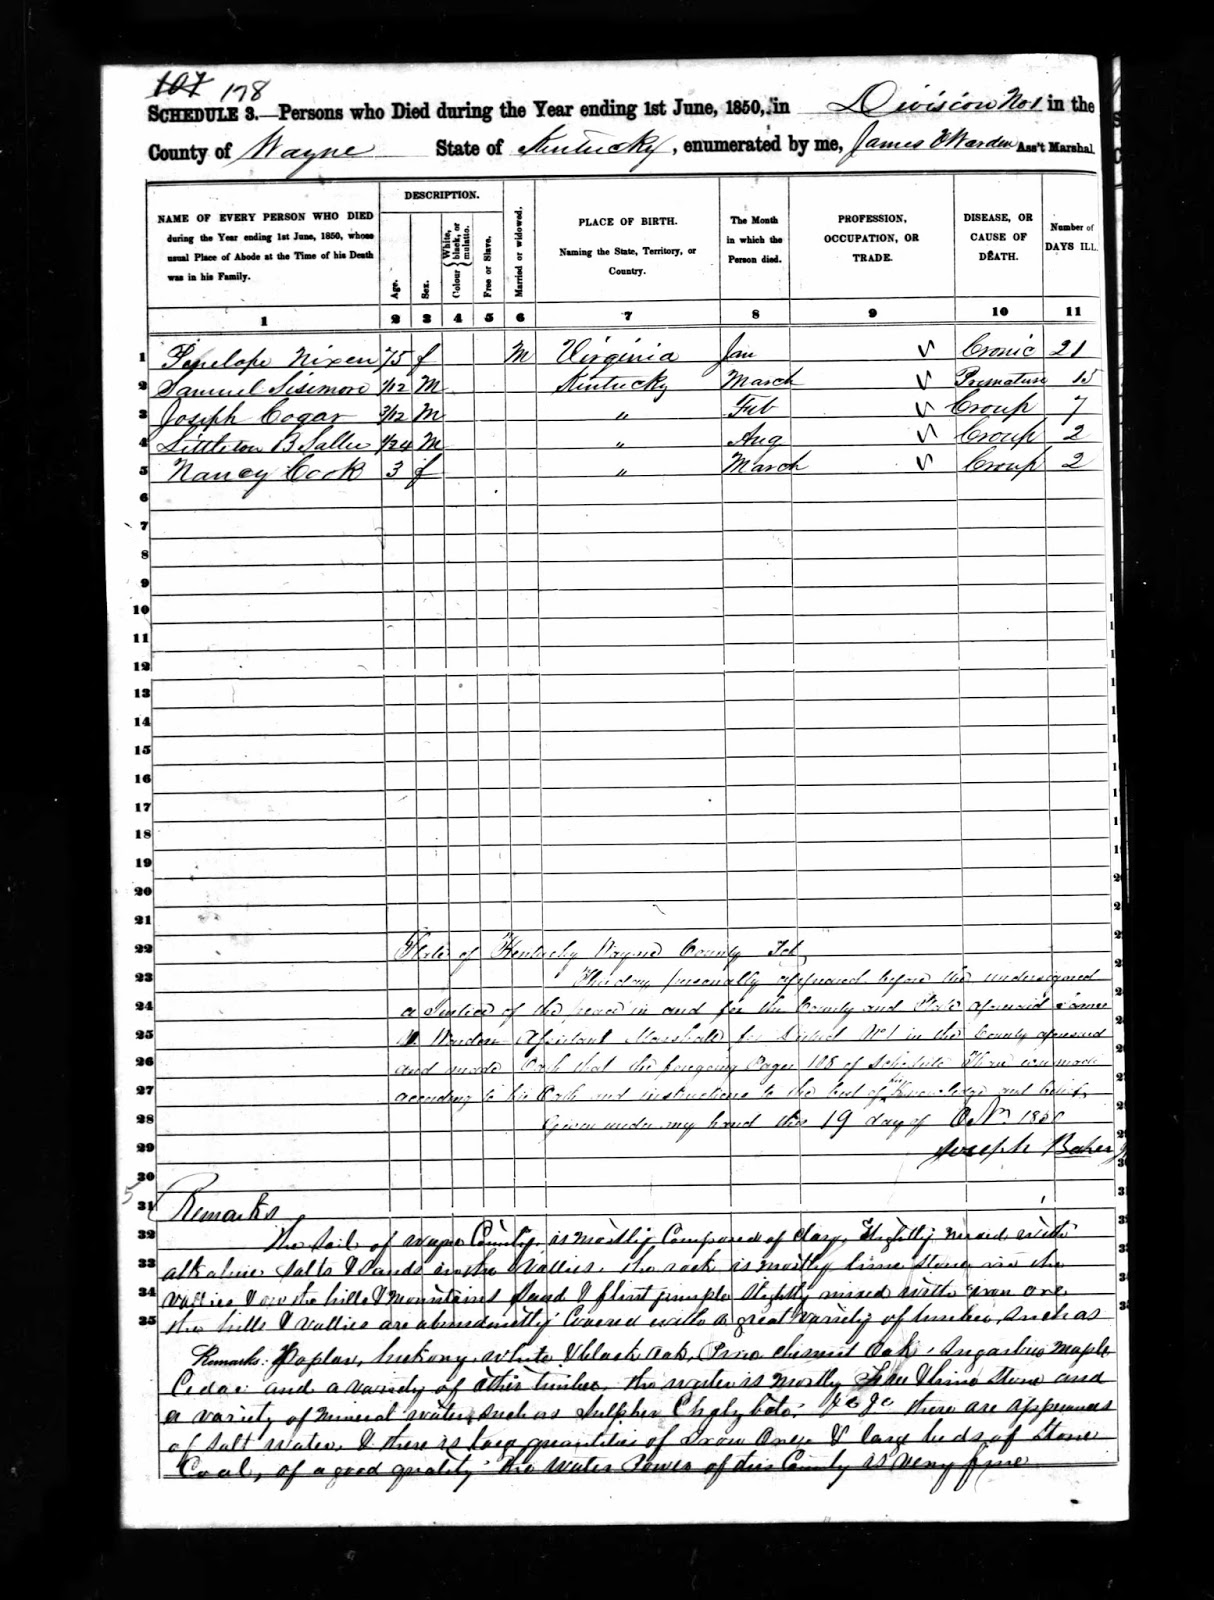 107 178
SCHEDULE 3.—Persons who Died during the Year ending 1st June, 1850, in Division No 1 in the
County of Wayne State of Kentucky, enumerated by me, James Warden Ass't Marshal.
DESCRIPTION.
NAME OF EVERY PERSON WHO DIED during the Year ending 1st June, 1850, whose usual Place of Abode at the Time of his Death was in his Family.
Age.
Sex.
Colour { White, black, or mulatto.
Free or Slave.
Married or widowed.
PLACE OF BIRTH. Naming the State, Territory, or Country.
The Month in which the Person died.
PROFESSION, OCCUPATION, OR TRADE.
DISEASE, OR CAUSE OF DEATH.
Number of DAYS ILL.
1 2 3 4 5 6 7 8 9 10 11
1 Penelope Nixen 75 f M Virginia Jan Cronic 21
2 Samuel Sisimore 1/12 M Kentucky March Premature 15
3 Joseph Cogar 3/12 M " Feb Croup 7
4 Littleton B 1/24 M " Aug Croup 2
5 Nancy Cook 3 f " March Croup 2
6
7
8
9
10
11
12
13
14
15
16
17
18
19
20
21
22 State of Kentucky Wayne County Sct,
23 This day personally appeared before the undersigned
24 a Justice of the peace in and for the County and State aforesaid James
25 Warden Assistant Marshall for District No 1 in the County aforesaid
26 and made Oath that the foregoing Pages 108 of Schedule Three was made
27 according to his Oath and instructions to the best of his Knowledge and belief,
28 Given under my hand this 19 day of 1850
29 Joseph Baker
30
31 Remarks
32 The soil of Wayne County is mostly Composed of clay, Slightly mixed with
33 alkaline salts & sands in the Vallies. the rock is mostly lime stone in the
34 vallies & on the hills & mountains Sand & flint slightly mixed with iron ore
35 the hills & vallies are abundantly Covered with a great variety of timber, such as
Remarks: Poplar, hickory, white & black oak, Pine chesnut Oak, Sugartree Maple
Cedar and a variety of other timber. the water is mostly free & lime stone and
a variety of mineral water, such as Sulpher &c &c there are appearances
of salt water, & there is large quantities of Iron Ore & large beds of Stone
Coal, of a good quality the water Power of this County is very fine